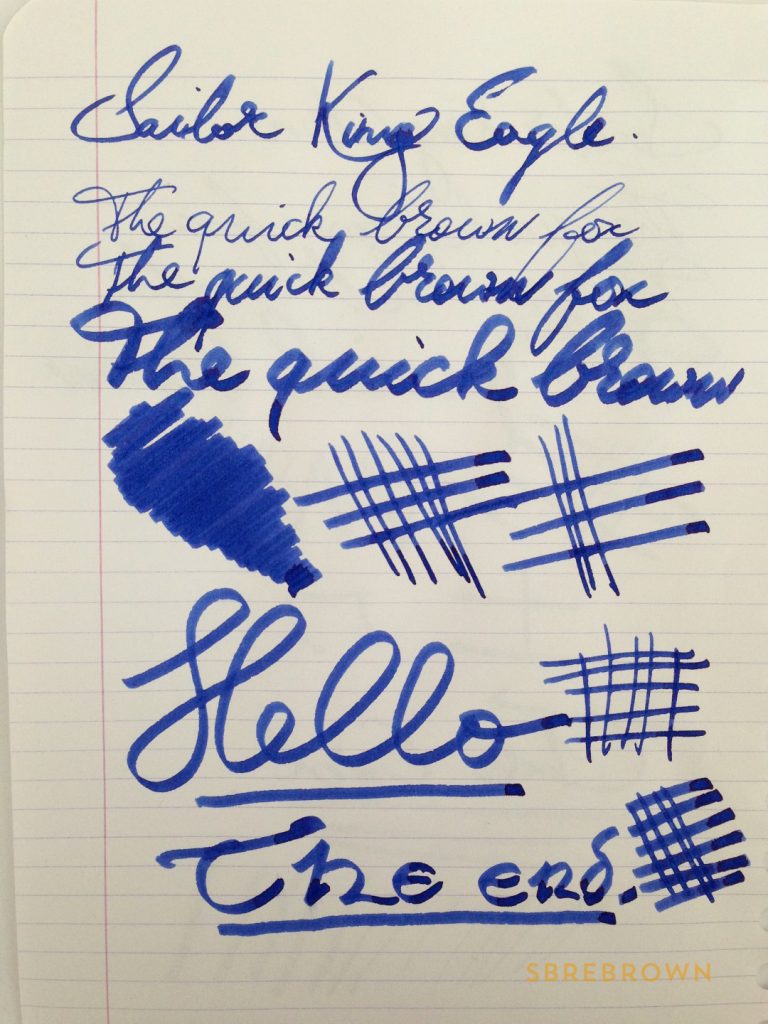 Sailor King Eagle.
The quick brown fox
The quick brown fox
The quick brown
Hello
The end.
SBREBROWN